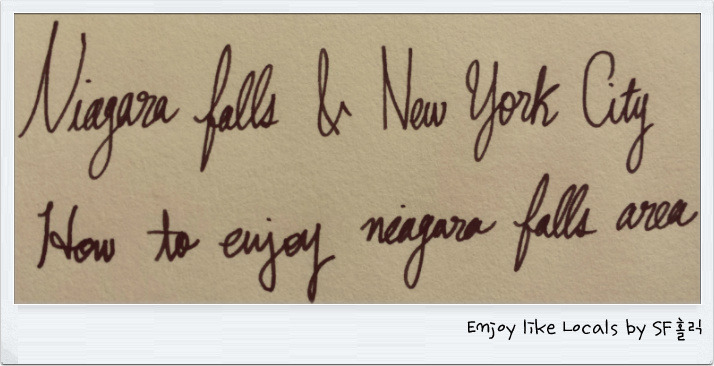 Niagara falls & New York City
How to enjoy niagara falls area
Enjoy like Locals by SF홀릭